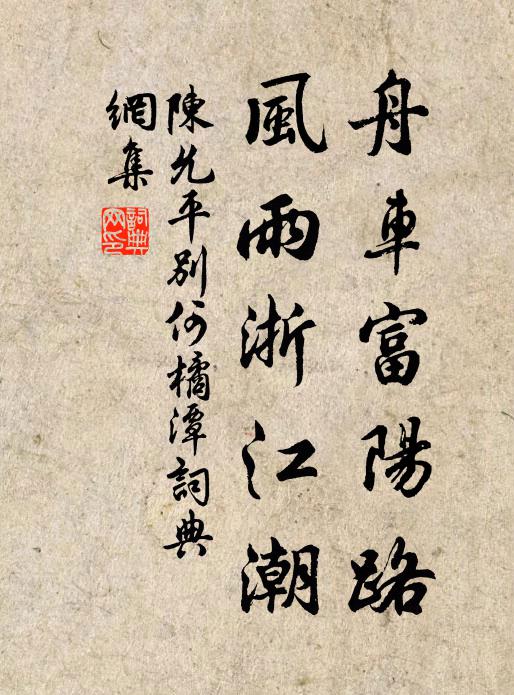 舟車富陽路
風雨浙江潮
陳允平別何橘潭詞典
網集
詞典
網印